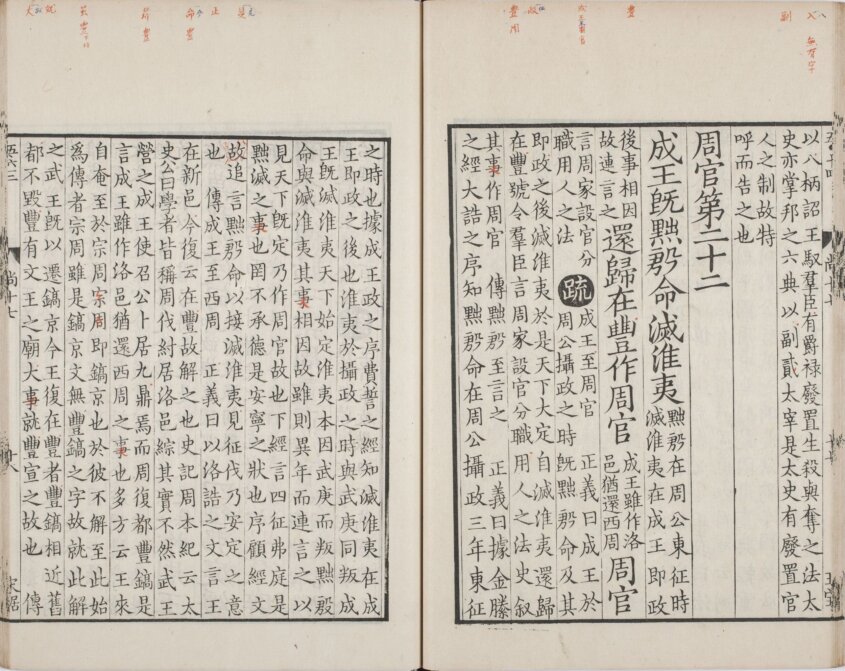 以八柄詔王馭羣臣有爵禄廢置生殺與奪之法太
史亦掌邦之六典以副貳太宰是太史有廢置官
人之制故特
呼而告之也
周官第二十二
成王旣黜殷命滅淮夷
黜殷在周公東征時
滅淮夷在成王即政
後事相因
故連言之
還歸在豐作周官
成王雖作洛
邑猶還西周
周官
言周家設官分
職用人之法
疏
成王至周官 正義曰成王於
周公攝政之時旣黜殷命及其
即政之後滅淮夷於是天下大定自滅淮夷還歸
在豐號令羣臣言周家設官分職用人之法史敘
其事作周官 傳黜殷至言之 正義曰據金縢
之經大誥之序知黜殷命在周公攝政三年東征
之時也據成王政之序費誓之經知滅淮夷在成
王即政之後也淮夷於攝政之時與武庚同叛成
王旣滅淮夷天下始定淮夷本因武庚而叛黜殷
命與滅淮夷其事相因故雖則異年而連言之以
見天下旣定乃作周官故也下經言四征弗庭是
黜滅之事也罔不承德是安寧之狀也序顧經文
故追言黜殷命以接滅淮夷見征伐乃安定之意
也 傳成王至西周 正義曰以洛誥之文言王
在新邑今復云在豐故解之也史記周本紀云太
史公曰學者皆稱周伐紂居洛邑綜其實不然武王
營之成王使召公卜居九鼎焉而周復都豐鎬是
言成王雖作洛邑猶還西周之事也多方云王來
自奄至於宗周宗周即鎬京也於彼不解至此始
爲傳者宗周雖是鎬京文無豐鎬之字故就此解
之武王旣以遷鎬京今王復在豐者豐鎬相近舊
都不毀豐有文王之廟大事就豐宣之故也 傳